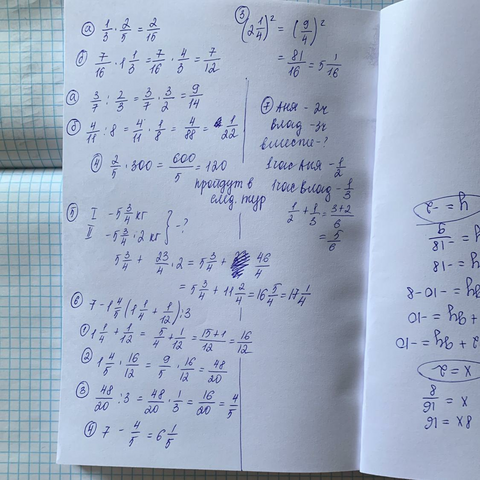 а) 1/3 · 2/5 = 2/15
б) 7/16 · 1 1/3 = 7/16 · 4/3 = 7/12
а) 3/7 : 2/3 = 3/7 · 3/2 = 9/14
б) 4/11 : 8 = 4/11 · 1/8 = 4/88 = 1/22
4) 2/5 · 300 = 600/5 = 120
пройдут в
след. тур
5) I - 5 3/4 кг
II - 5 3/4 · 2 кг } - ?
5 3/4 + 23/4 · 2 = 5 3/4 + 46/4
= 5 3/4 + 11 2/4 = 16 5/4 = 17 1/4
6) 7 - 1 4/5 (1 1/4 + 1/12) : 3
1) 1 1/4 + 1/12 = 5/4 + 1/12 = 15+1/12 = 16/12
2) 1 4/5 · 16/12 = 9/5 · 16/12 = 48/20
3) 48/20 : 3 = 48/20 · 1/3 = 16/20 = 4/5
4) 7 - 4/5 = 6 1/5
3) (2 1/4)² = (9/4)²
= 81/16 = 5 1/16
7) Аня - 2ч
Влад - 3ч
вместе - ?
1 час Аня - 1/2
1 час Влад - 1/3
1/2 + 1/3 = 3+2/6
= 5/6
8x = 16
x = 16/8
x = 2
2 + 9y = -10
+ 9y = -10
y = -10-8
y = -18
y = -18/9
y = -2